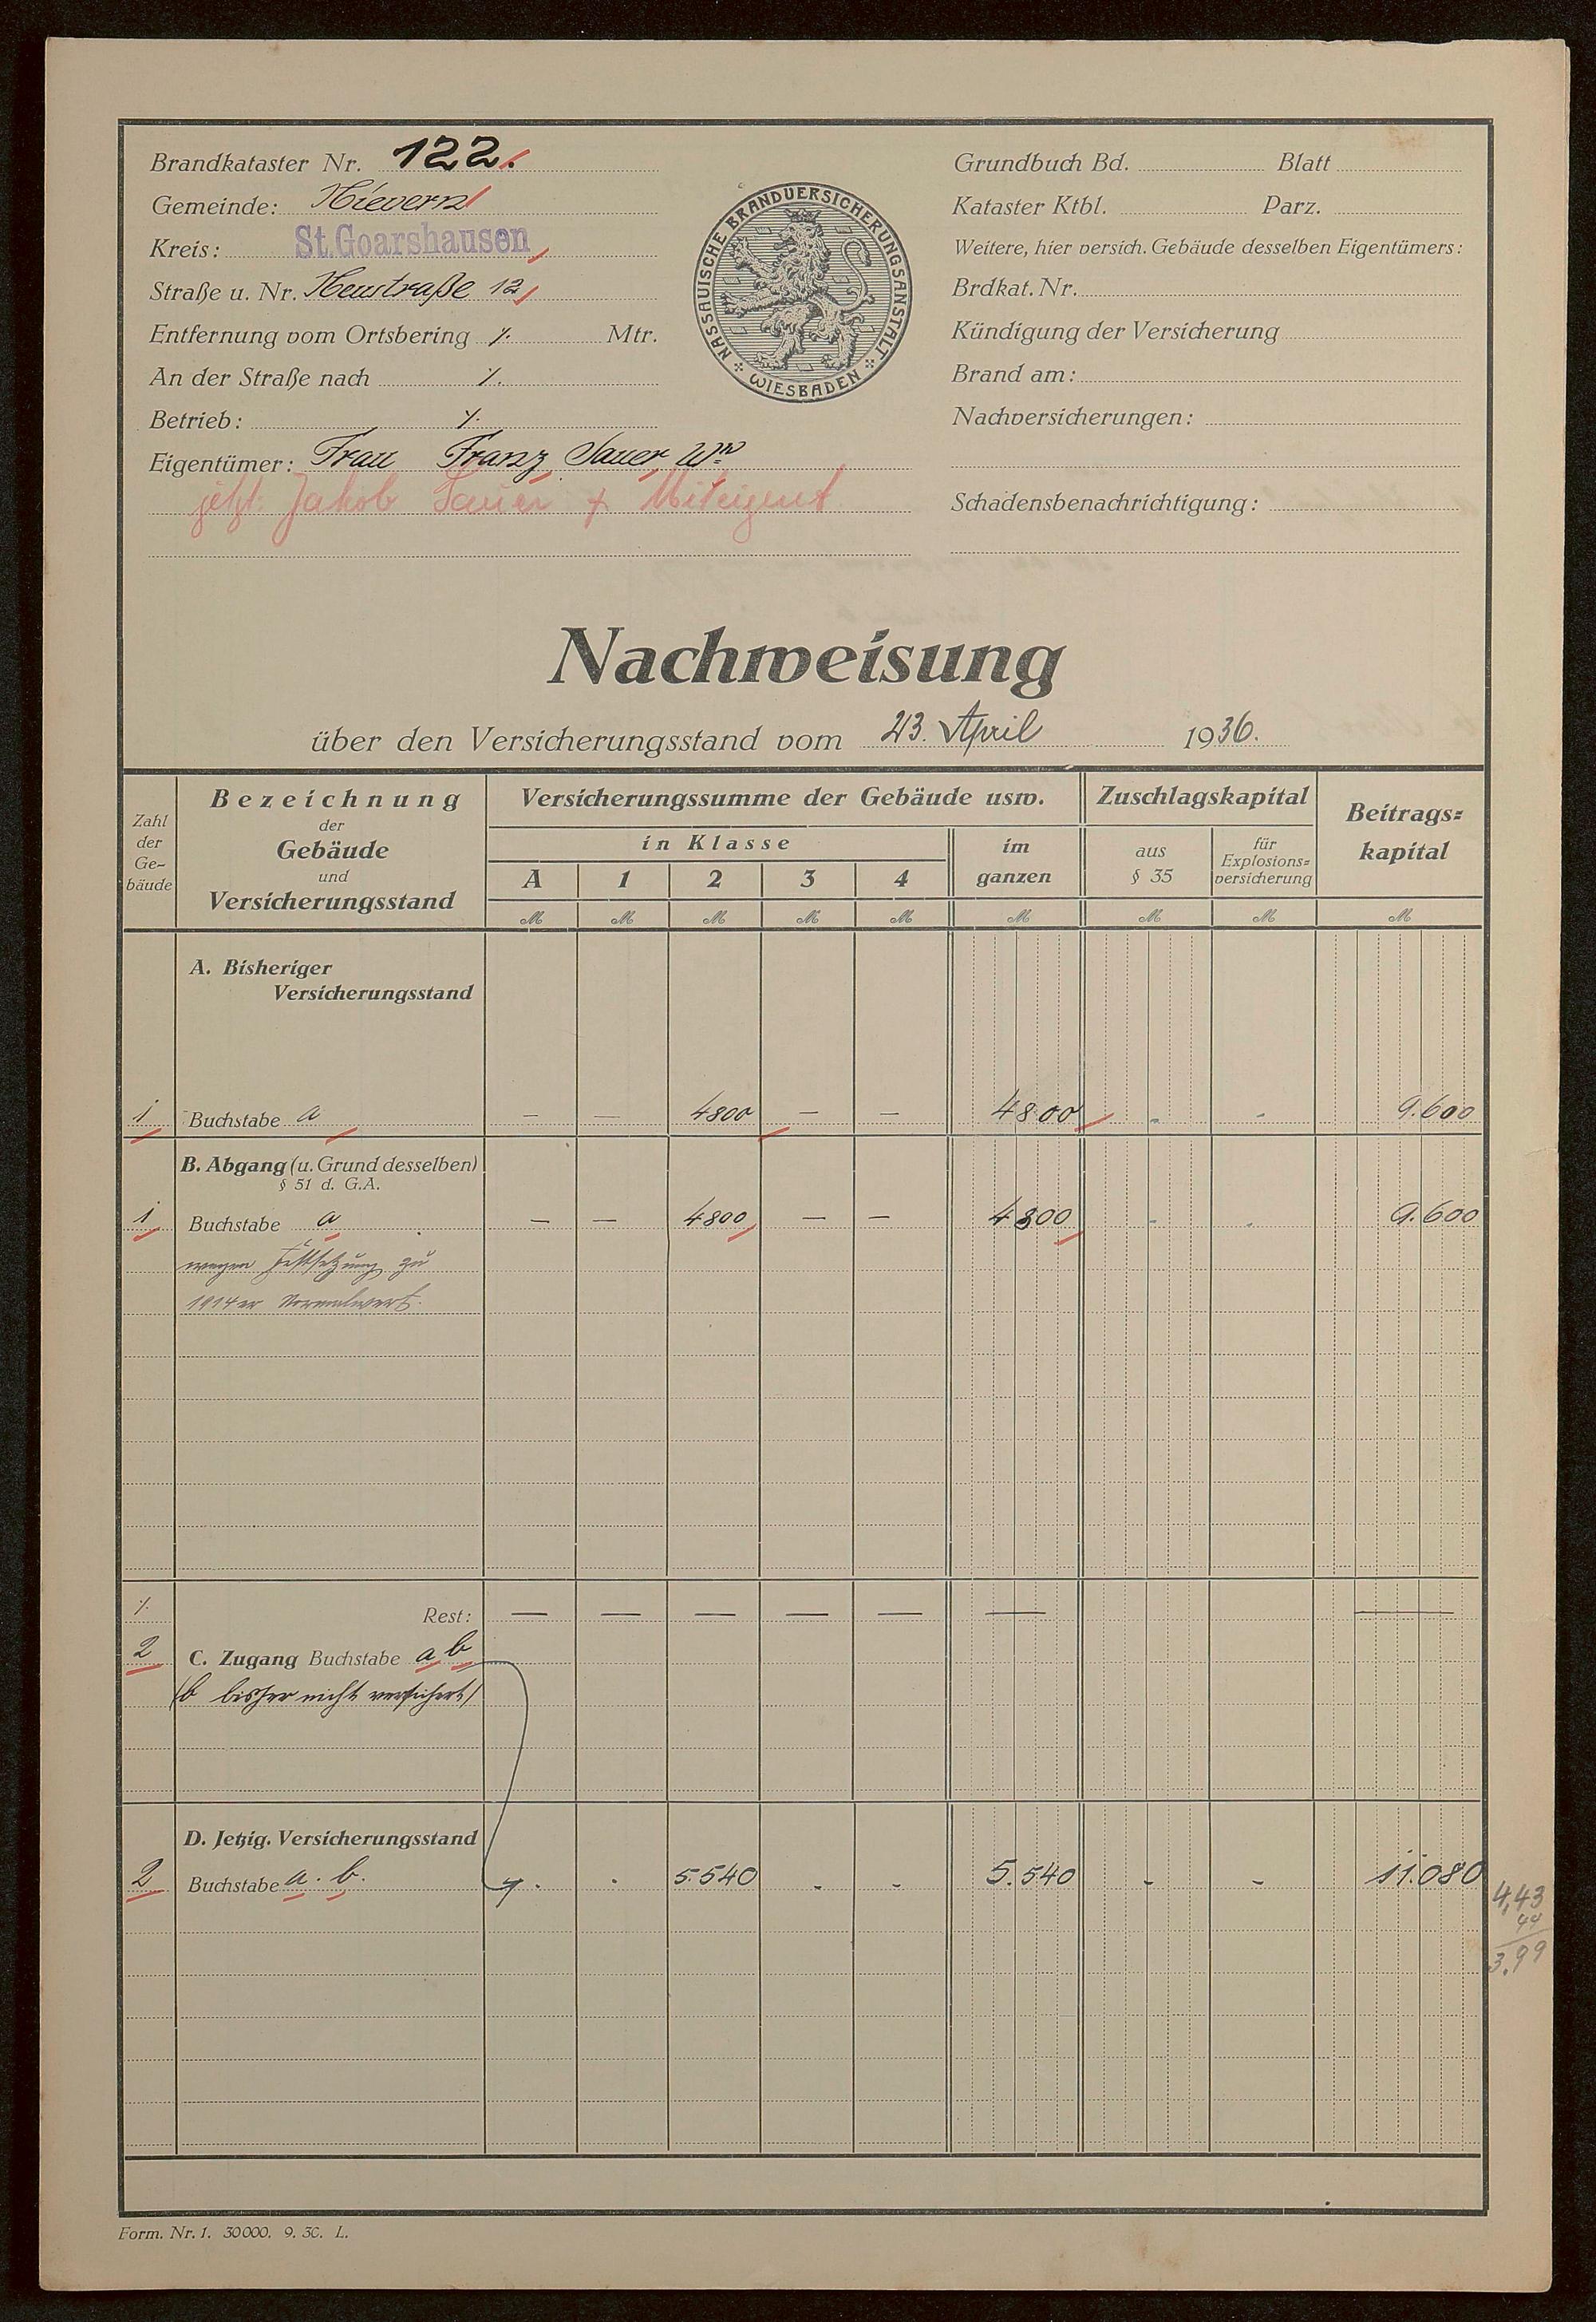 Brandkataster Nr. 122.
Gemeinde: Nievern
Kreis: St. Goarshausen
Straße u. Nr. Neustraße 12
Entfernung vom Ortsbering ./. Mtr.
An der Straße nach ./.
Betrieb: ./.
Eigentümer: Frau Franz Sauer Ww
jetzt: Jakob Sauer + Miteigent.
NASSAUISCHE BRANDVERSICHERUNGSANSTALT
WIESBADEN
Grundbuch Bd. Blatt
Kataster Ktbl. Parz.
Weitere, hier versich. Gebäude desselben Eigentümers:
Brdkat. Nr.
Kündigung der Versicherung
Brand am:
Nachversicherungen:
Schadensbenachrichtigung:
Nachweisung
über den Versicherungsstand vom 23. April 1936.
Zahl der Ge-bäude
Bezeichnung der Gebäude und Versicherungsstand
Versicherungssumme der Gebäude usw.
in Klasse
A 1 2 3 4
im ganzen
Zuschlagskapital
aus § 35
für Explosions=versicherung
Beitrags=kapital
M M M M M M M M M
A. Bisheriger
Versicherungsstand
1 Buchstabe a — — 4800 — — 4800 - - 9.600
B. Abgang (u. Grund desselben)
§ 51 d. G.A.
1 Buchstabe a — — 4800 — — 4800 - - 9.600
wegen Festsetzung zu
1914er Normalwert.
./. Rest: — — — — — — —
2 C. Zugang Buchstabe a b
(b bisher nicht versichert)
D. Jetzig. Versicherungsstand
2 Buchstabe a. b. . . 5.540 - - 5.540 - - 11.080
4,43
44
3.99
Form. Nr. 1. 30000. 9. 30. L.